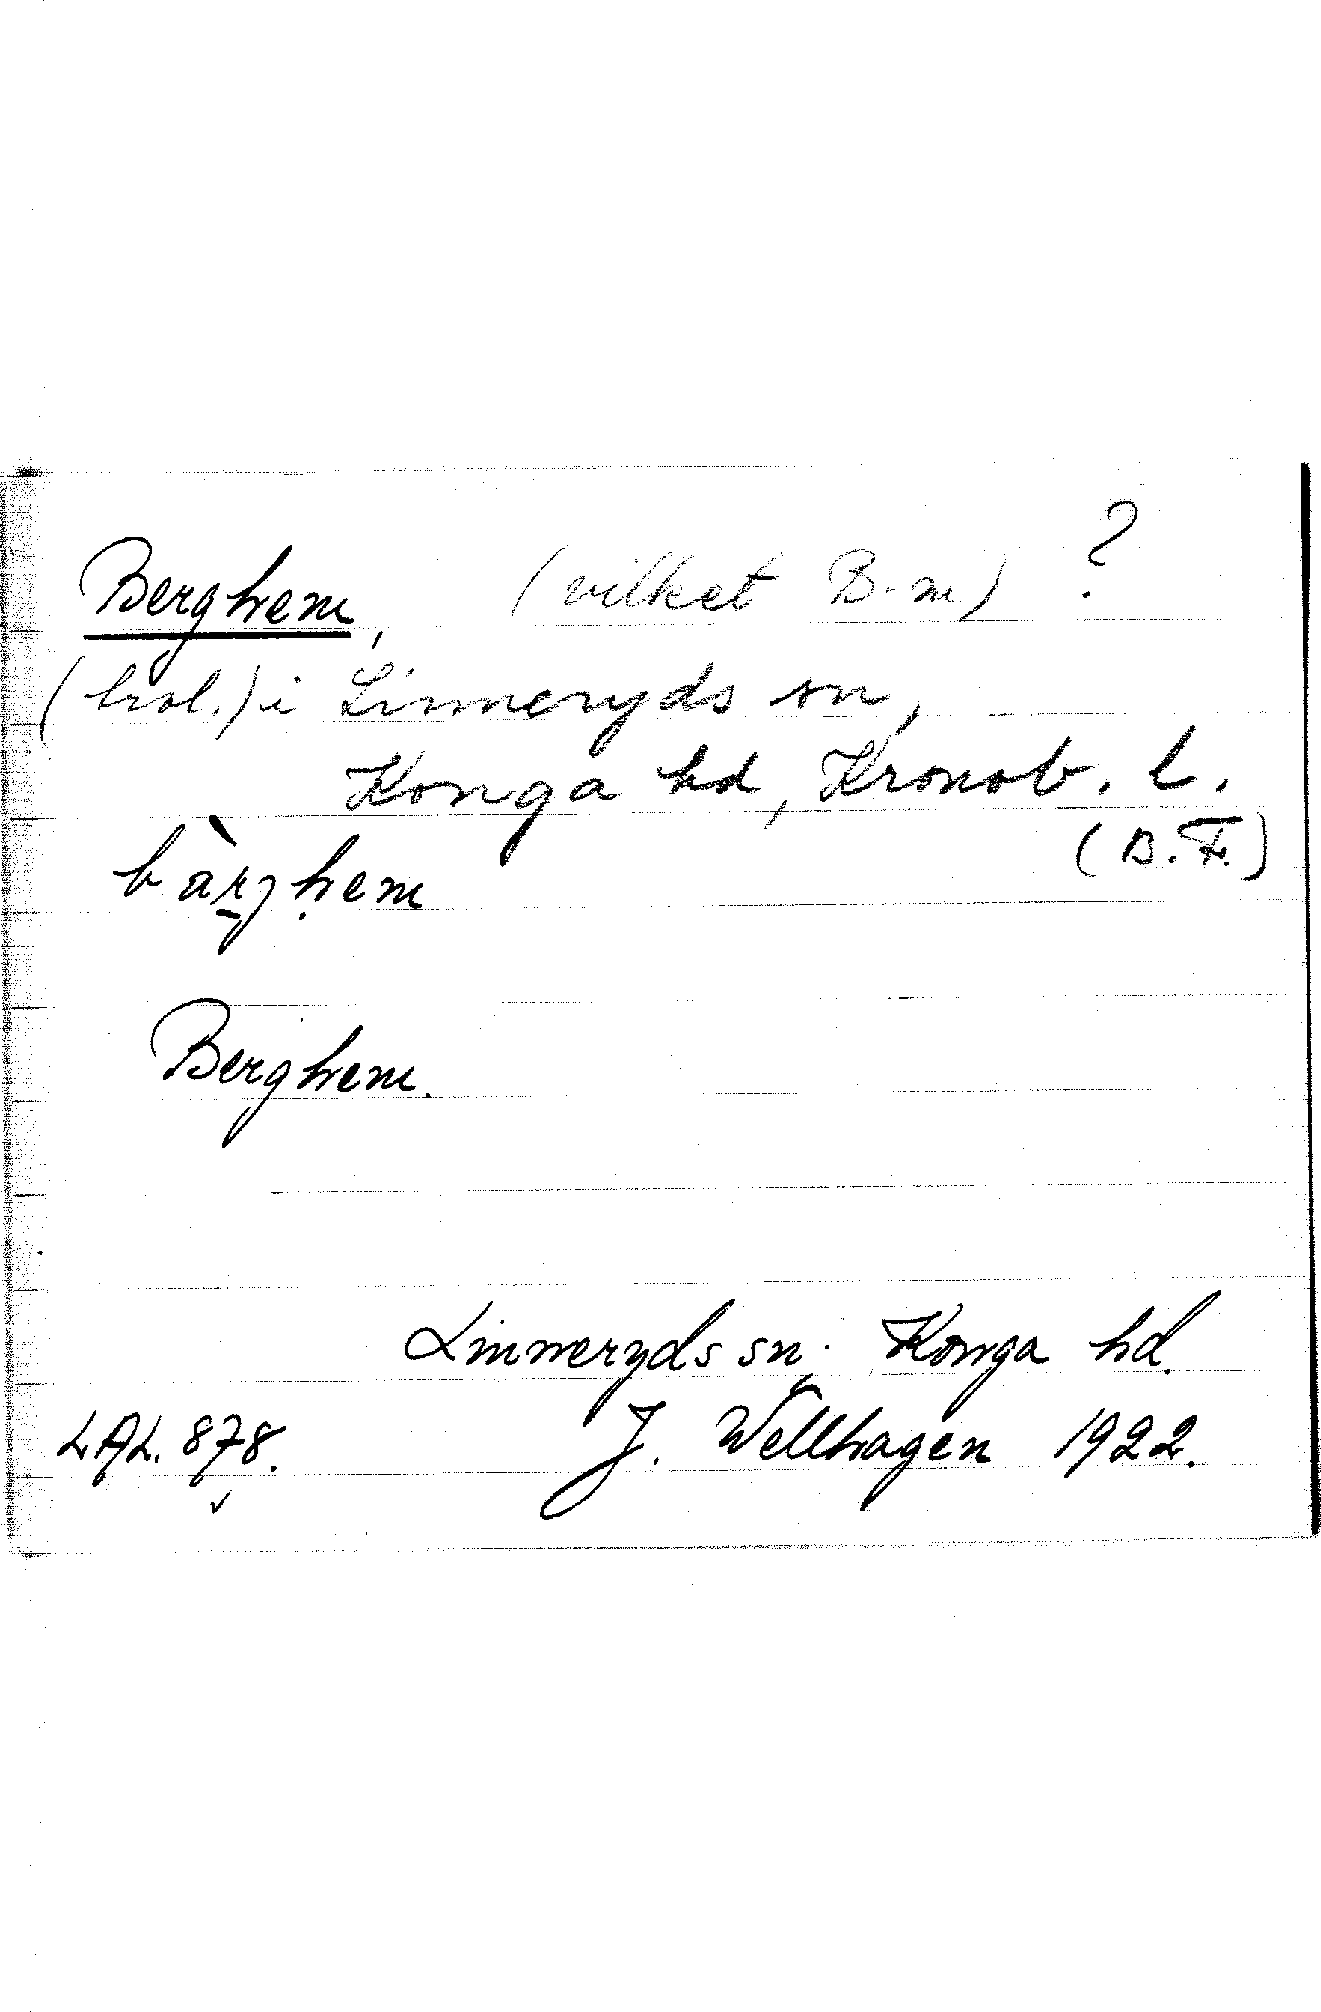 Berghem, (vilket B-m) ?
i Linneryds sn,
Konga hd, Kronob. l.
(B.F.)
bàrjhem
Berghem.
Linneryds sn. Konga hd.
LAL. 878. J. Wellhagen 1922.